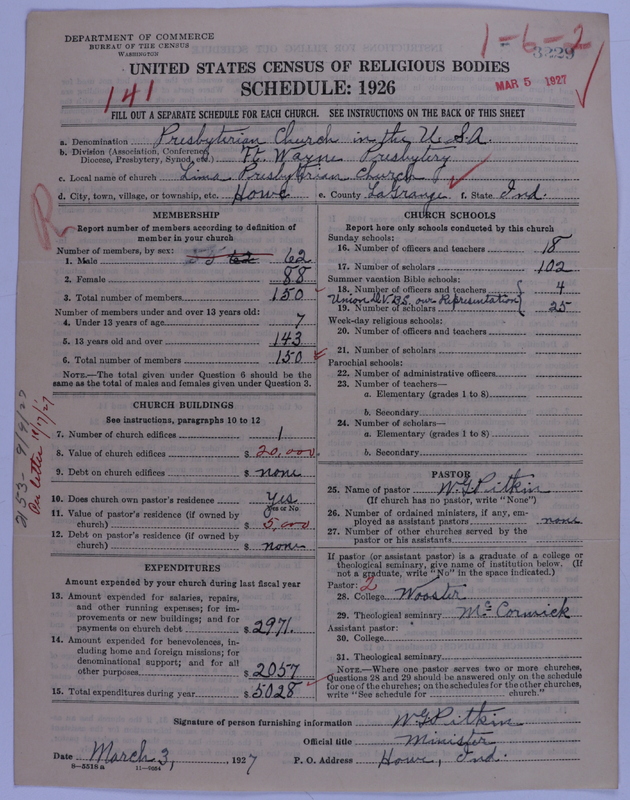 DEPARTMENT OF COMMERCE
BUREAU OF THE CENSUS
WASHINGTON
1-6-2
3229
MAR 5 1927
UNITED STATES CENSUS OF RELIGIOUS BODIES
SCHEDULE: 1926
141
FILL OUT A SEPARATE SCHEDULE FOR EACH CHURCH. SEE INSTRUCTIONS ON THE BACK OF THIS SHEET
a. Denomination Presbyterian Church in the U.S.A.
b. Division (Association, Conference, Diocese, Presbytery, Synod, etc.) Ft. Wayne Presbytery
c. Local name of church Lima Presbyterian Church
d. City, town, village, or township, etc. Howe e. County LaGrange f. State Ind.
R
MEMBERSHIP
Report number of members according to definition of member in your church
Number of members, by sex:
1. Male 62 62
2. Female 88
3. Total number of members 150
Number of members under and over 13 years old:
4. Under 13 years of age 7
5. 13 years old and over 143
6. Total number of members 150
NOTE.—The total given under Question 6 should be the same as the total of males and females given under Question 3.
CHURCH BUILDINGS
See instructions, paragraphs 10 to 12
7. Number of church edifices 1
8. Value of church edifices $ 20,000
9. Debt on church edifices $ none
10. Does church own pastor's residence yes
Yes or No
11. Value of pastor's residence (if owned by church) $ 5,000
12. Debt on pastor's residence (if owned by church) $ none
EXPENDITURES
Amount expended by your church during last fiscal year
13. Amount expended for salaries, repairs, and other running expenses; for improvements or new buildings; and for payments on church debt $ 2971.
14. Amount expended for benevolences, including home and foreign missions; for denominational support; and for all other purposes $ 2057
15. Total expenditures during year $ 5028
CHURCH SCHOOLS
Report here only schools conducted by this church
Sunday schools:
16. Number of officers and teachers 18
17. Number of scholars 102
Summer vacation Bible schools:
18. Number of officers and teachers 4
Union D.V.B.S. our Representation
19. Number of scholars 25
Week-day religious schools:
20. Number of officers and teachers
21. Number of scholars
Parochial schools:
22. Number of administrative officers
23. Number of teachers—
a. Elementary (grades 1 to 8)
b. Secondary
24. Number of scholars—
a. Elementary (grades 1 to 8)
b. Secondary
PASTOR
25. Name of pastor W. G. Pitkin
(If church has no pastor, write "None")
26. Number of ordained ministers, if any, employed as assistant pastors none
27. Number of other churches served by the pastor or his assistants
If pastor (or assistant pastor) is a graduate of a college or theological seminary, give name of institution below. (If not a graduate, write "No" in the space indicated.)
Pastor: 2
28. College Wooster
29. Theological seminary McCormick
Assistant pastor:
30. College
31. Theological seminary
NOTE.—Where one pastor serves two or more churches, Questions 28 and 29 should be answered only on the schedule for one of the churches; on the schedules for the other churches, write "See schedule for church."
Signature of person furnishing information W G Pitkin
Official title Minister
Date March 3, 1927 P. O. Address Howe, Ind.
8—5518 a 11—9054